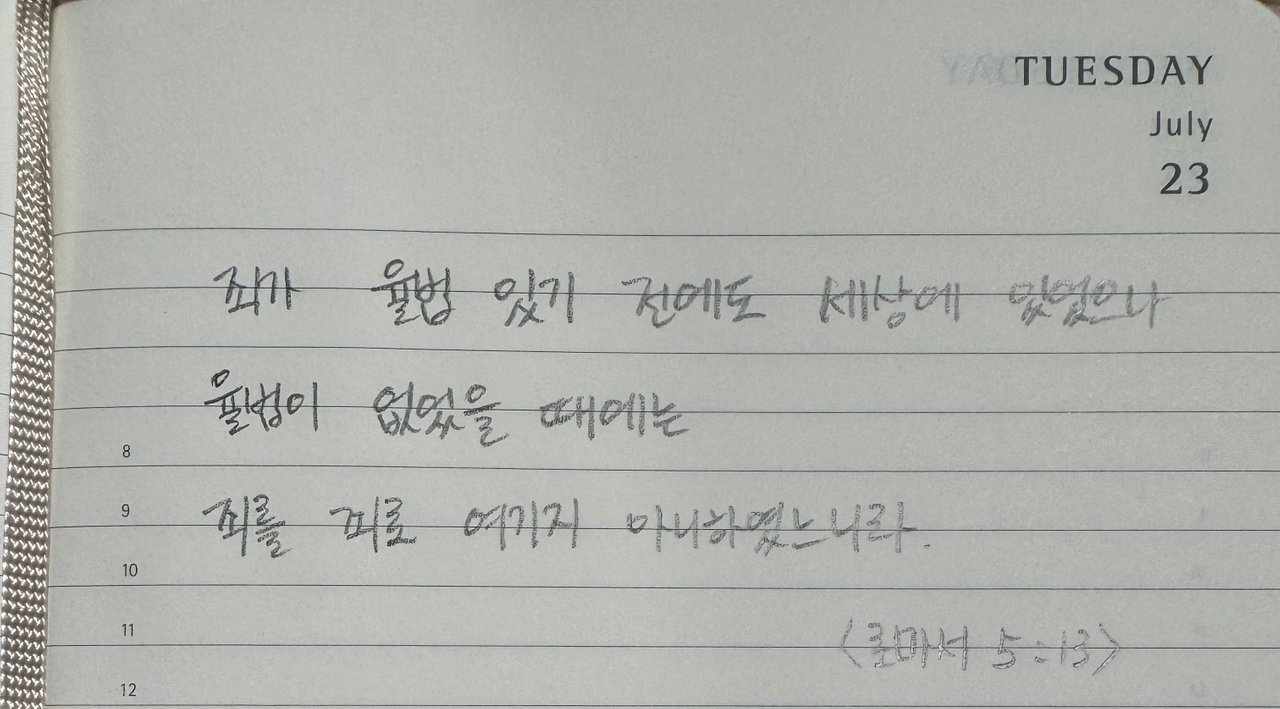 TUESDAY
July
23
죄가 율법 있기 전에도 세상에 있었으나
율법이 없었을 때에는
8
죄를 죄로 여기지 아니하였느니라.
9
10
11
<로마서 5:13>
12